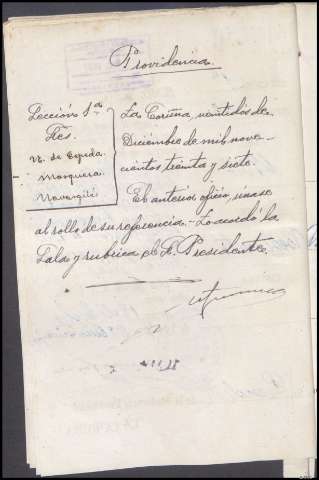 Providencia
Sección 1ª
Sres.
N. de Cepeda
Mosquera
La Coruña, veintidos de
Diciembre de mil nove-
cientos treinta y siete.
El anterior oficio, únase
al rollo de su referencia.- Lo acordó la
Sala y rubrica el S. Presidente.